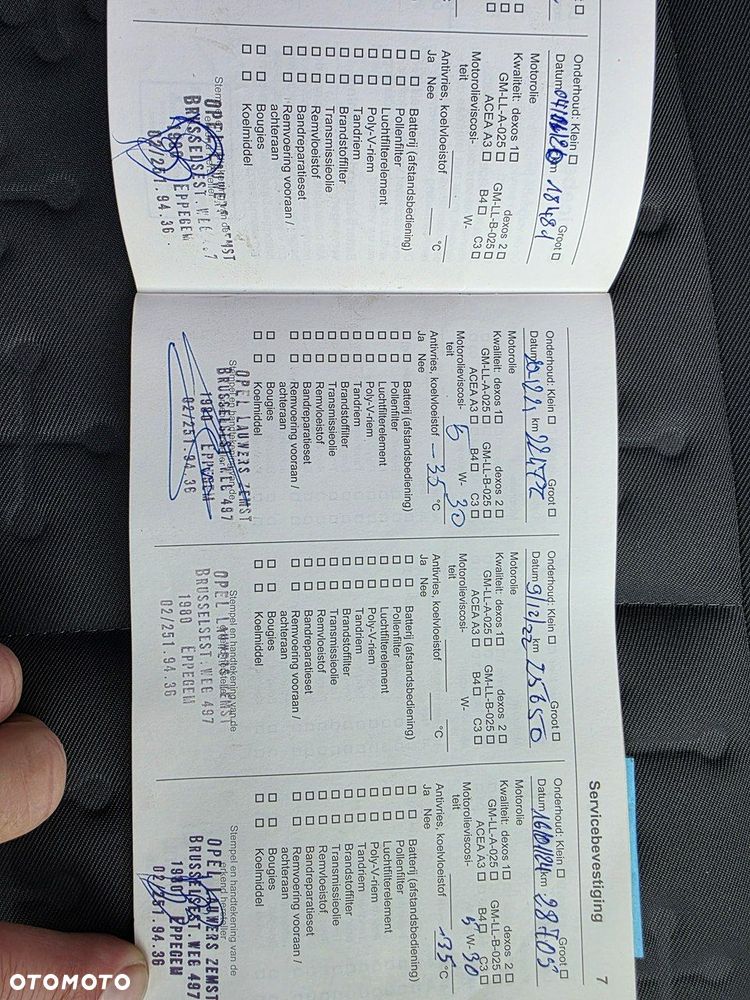 Servicebevestiging
7
Onderhoud: Klein ☐ Groot ☐
Datum km 18481
Motorolie
Kwaliteit: dexos 1 ☐ dexos 2 ☐
GM-LL-A-025 ☐ GM-LL-B-025 ☐
ACEA A3 ☐ B4 ☐ C3 ☐
Motorolieviscosi-
teit W-
Antivries, koelvloeistof °C
Ja Nee
☐ ☐ Batterij (afstandsbediening)
☐ ☐ Pollenfilter
☐ ☐ Luchtfilterelement
☐ ☐ Poly-V-riem
☐ ☐ Tandriem
☐ ☐ Brandstoffilter
☐ ☐ Transmissieolie
☐ ☐ Remvloeistof
☐ ☐ Bandreparatieset
☐ ☐ Remvoering vooraan /
achteraan
☐ ☐ Bougies
☐ ☐ Koelmiddel
OPEL LAUWERS ZEMST
BRUSSELSEST.WEG 497
1980 EPPEGEM
02/251.94.36
Onderhoud: Klein ☐ Groot ☐
Datum km
Motorolie
Kwaliteit: dexos 1 ☐ dexos 2 ☐
GM-LL-A-025 ☐ GM-LL-B-025 ☐
ACEA A3 ☐ B4 ☐ C3 ☐
Motorolieviscosi-
teit 5 W- 30
Antivries, koelvloeistof -35 °C
Ja Nee
☐ ☐ Batterij (afstandsbediening)
☐ ☐ Pollenfilter
☐ ☐ Luchtfilterelement
☐ ☐ Poly-V-riem
☐ ☐ Tandriem
☐ ☐ Brandstoffilter
☐ ☐ Transmissieolie
☐ ☐ Remvloeistof
☐ ☐ Bandreparatieset
☐ ☐ Remvoering vooraan /
achteraan
☐ ☐ Bougies
☐ ☐ Koelmiddel
OPEL LAUWERS ZEMST
BRUSSELSEST.WEG 497
1980 EPPEGEM
02/251.94.36
Onderhoud: Klein ☐ Groot ☐
Datum 9/12/22 km 25650
Motorolie
Kwaliteit: dexos 1 ☐ dexos 2 ☐
GM-LL-A-025 ☐ GM-LL-B-025 ☐
ACEA A3 ☐ B4 ☐ C3 ☐
Motorolieviscosi-
teit W-
Antivries, koelvloeistof °C
Ja Nee
☐ ☐ Batterij (afstandsbediening)
☐ ☐ Pollenfilter
☐ ☐ Luchtfilterelement
☐ ☐ Poly-V-riem
☐ ☐ Tandriem
☐ ☐ Brandstoffilter
☐ ☐ Transmissieolie
☐ ☐ Remvloeistof
☐ ☐ Bandreparatieset
☐ ☐ Remvoering vooraan /
achteraan
☐ ☐ Bougies
☐ ☐ Koelmiddel
Stempel en handtekening van de
OPEL LAUWERS ZEMST
BRUSSELSEST.WEG 497
1980 EPPEGEM
02/251.94.36
Onderhoud: Klein ☐ Groot ☐
Datum 16/01/24 km 28705
Motorolie
Kwaliteit: dexos 1 ☐ dexos 2 ☐
GM-LL-A-025 ☐ GM-LL-B-025 ☐
ACEA A3 ☐ B4 ☐ C3 ☐
Motorolieviscosi-
teit 5 W- 30
Antivries, koelvloeistof -35 °C
Ja Nee
☐ ☐ Batterij (afstandsbediening)
☐ ☐ Pollenfilter
☐ ☐ Luchtfilterelement
☐ ☐ Poly-V-riem
☐ ☐ Tandriem
☐ ☐ Brandstoffilter
☐ ☐ Transmissieolie
☐ ☐ Remvloeistof
☐ ☐ Bandreparatieset
☐ ☐ Remvoering vooraan /
achteraan
☐ ☐ Bougies
☐ ☐ Koelmiddel
Stempel en handtekening van de
erkend hersteller
OPEL LAUWERS ZEMST
BRUSSELSEST.WEG 497
1980 EPPEGEM
02/251.94.36
OTOMOTO